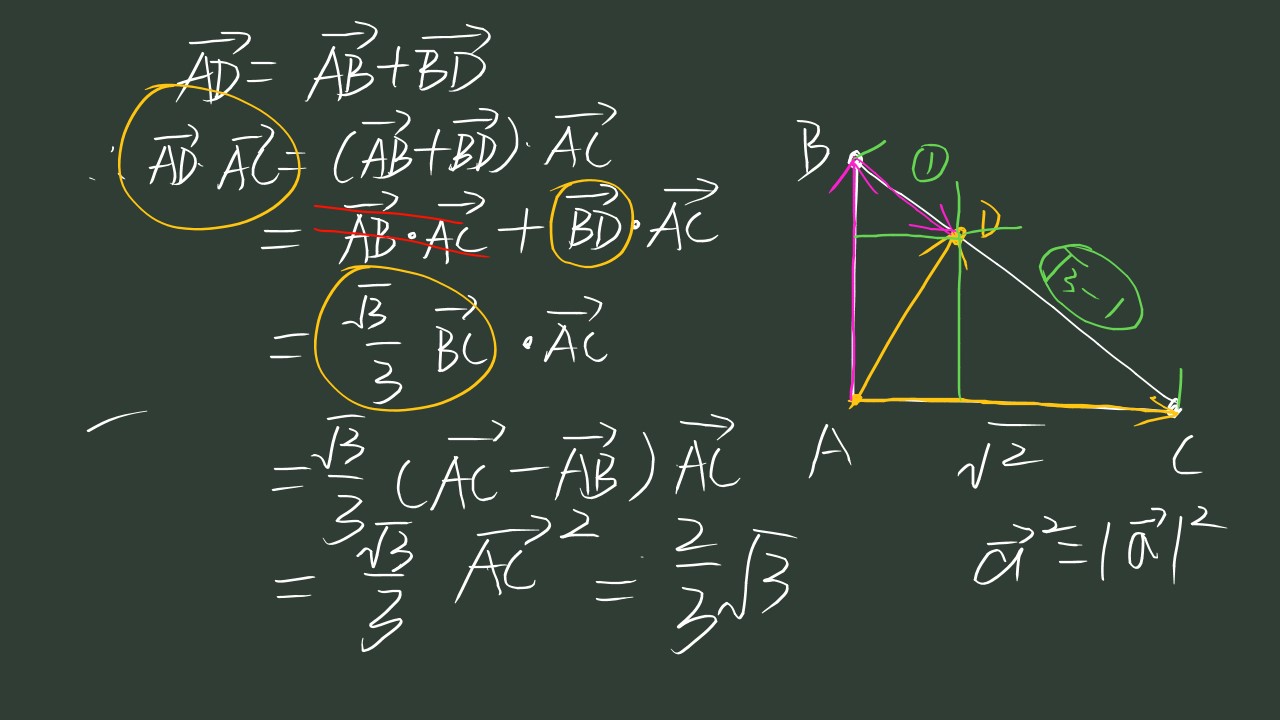 $\overrightarrow{AD} = \overrightarrow{AB} + \overrightarrow{BD}$
$\therefore \overrightarrow{AD} \cdot \overrightarrow{AC} = (\overrightarrow{AB} + \overrightarrow{BD}) \cdot \overrightarrow{AC}$
$= \overrightarrow{AB} \cdot \overrightarrow{AC} + \overrightarrow{BD} \cdot \overrightarrow{AC}$
$= \frac{\sqrt{3}}{3} \overrightarrow{BC} \cdot \overrightarrow{AC}$
$= \frac{\sqrt{3}}{3} (\overrightarrow{AC} - \overrightarrow{AB}) \overrightarrow{AC}$
$= \frac{\sqrt{3}}{3} \overrightarrow{AC}^2 = \frac{2}{3}\sqrt{3}$
B
①
D
$\sqrt{3}-1$
A
$\sqrt{2}$
C
$\vec{a}^2 = |\vec{a}|^2$